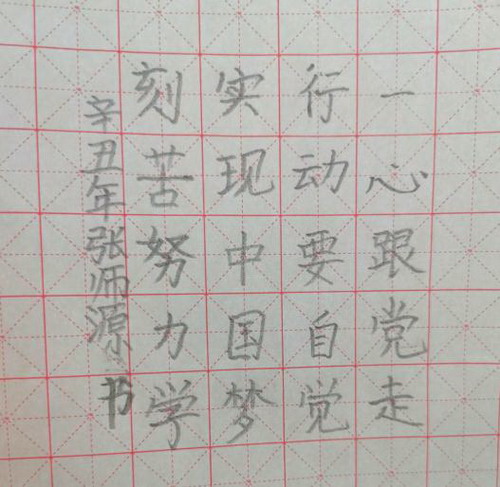 一心跟党走
行动要自觉
实现中国梦
刻苦努力学
辛丑年张师源书